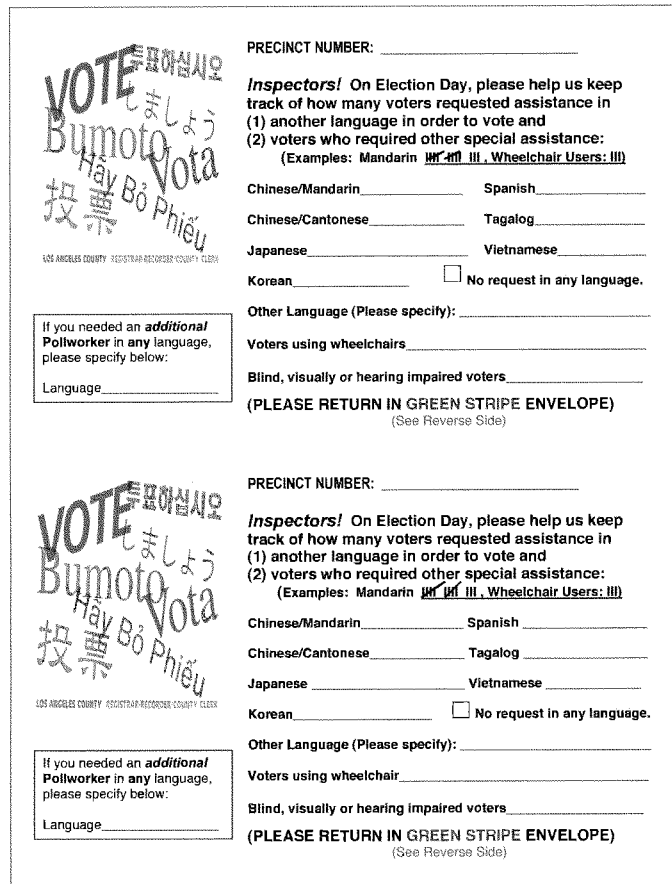 VOTE
투표하십시오
しましょう
Bumoto
Vota
Hãy Bỏ Phiếu
投票
LOS ANGELES COUNTY REGISTRAR-RECORDER/COUNTY CLERK
If you needed an additional
Pollworker in any language,
please specify below:
Language
PRECINCT NUMBER:
Inspectors! On Election Day, please help us keep
track of how many voters requested assistance in
(1) another language in order to vote and
(2) voters who required other special assistance:
(Examples: Mandarin IIII IIII III , Wheelchair Users: III)
Chinese/Mandarin Spanish
Chinese/Cantonese Tagalog
Japanese Vietnamese
Korean No request in any language.
Other Language (Please specify):
Voters using wheelchairs
Blind, visually or hearing impaired voters
(PLEASE RETURN IN GREEN STRIPE ENVELOPE)
(See Reverse Side)
VOTE
투표하십시오
しましょう
Bumoto
Vota
Hãy Bỏ Phiếu
投票
LOS ANGELES COUNTY REGISTRAR-RECORDER/COUNTY CLERK
If you needed an additional
Pollworker in any language,
please specify below:
Language
PRECINCT NUMBER:
Inspectors! On Election Day, please help us keep
track of how many voters requested assistance in
(1) another language in order to vote and
(2) voters who required other special assistance:
(Examples: Mandarin IIII IIII III , Wheelchair Users: III)
Chinese/Mandarin Spanish
Chinese/Cantonese Tagalog
Japanese Vietnamese
Korean No request in any language.
Other Language (Please specify):
Voters using wheelchair
Blind, visually or hearing impaired voters
(PLEASE RETURN IN GREEN STRIPE ENVELOPE)
(See Reverse Side)